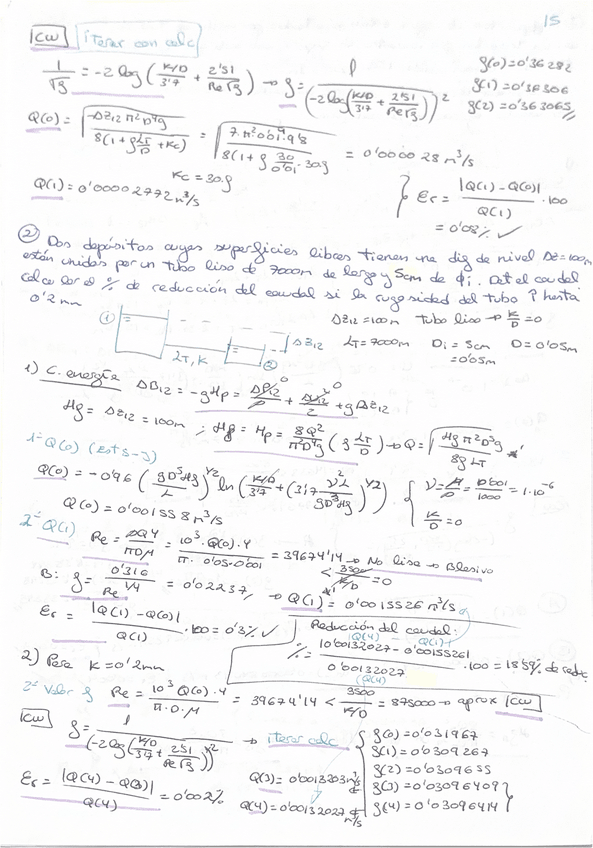 15
KW iterar con calc
1/√ρ = -2 log( (K/D)/3'7 + 2'51/(Re√ρ) ) → ρ = 1/(-2 log( (K/D)/3'7 + 2'51/(Re√ρ) ))²
ρ(0)=0'36282
ρ(1)=0'36306
ρ(2)=0'363065
Q(0) = √( ΔZ12 π² D⁴ g / 8(1+ρ LT/D + Kc) ) = √( 7·π²·0'01⁴·9'8 / 8(1+ρ 30/0'01 · 30ρ) ) = 0'000028 m³/s
Kc = 30ρ
Q(1) = 0'00002772 m³/s
Er = |Q(1) - Q(0)| / Q(1) · 100
= 0'03% ✓
② Dos depósitos cuyas superficies libres tienen una dif de nivel Δz=100m
están unidos por un tubo liso de 7000m de largo y 5cm de ϕi. Det el caudal
calcular el % de reducción del caudal si la rugosidad del tubo ↑ hasta
0'2 mm
① ΔZ12=100m tubo liso → K/D = 0
ΔZ12 LT = 7000m Di = 5cm D = 0'05m
LT, K ② = 0'05m
1) C. energía ΔB12 = -gHp = ΔP12/ρ + ΔV12²/2 + gΔZ12
Hg = ΔZ12 = 100m ; Hg = Hp = 8Q²/(π²D⁴g) (ρ LT/D) → Q = √( Hg π² D⁵ g / 8ρ LT )
1º Q(0) (Est 5-3)
Q(0) = -0'96 (gD⁵Hg/L)^1/2 ln( (K/D)/3'7 + (3'17 ν²L/(gD³Hg))^1/2 )
ν = μ/ρ = 0'001/1000 = 1·10⁻⁶
K/D = 0
Q(0) = 0'001558 m³/s
2º Q(1) Re = ρQ4/(πDμ) = 10³·Q(0)·4/(π·0'05·0'001) = 39674'14 → No liso → Blasius
< 3500/(K/D) = 0
B: ρ = 0'316/Re^1/4 = 0'02237, → Q(1) = 0'0015526 m³/s
Er = |Q(1) - Q(0)| / Q(1) · 100 = 0'3% ✓
Reducción del caudal:
Q(4) Q(1)
% = |0'00132027 - 0'00155261| / 0'00132027 · 100 = 18'59% de reduc
(Q(4)
2) Para K=0'2mm
2º Valor ρ Re = 10³ Q(0)·4/(π·D·μ) = 39674'14 < 3500/(K/D) = 875000 → aprox KW
KW ρ = 1/(-2 log( (K/D)/3'7 + 2'51/(Re√ρ) ))² → iterar calc
ρ(0)=0'031967
ρ(1)=0'0309267
ρ(2)=0'0309655
ρ(3)=0'03096409
ρ(4)=0'03096414
Q(3) = 0'0013203 m³/s
Er = |Q(4) - Q(3)| / Q(4) = 0'002%
Q(4) = 0'00132027 m³/s